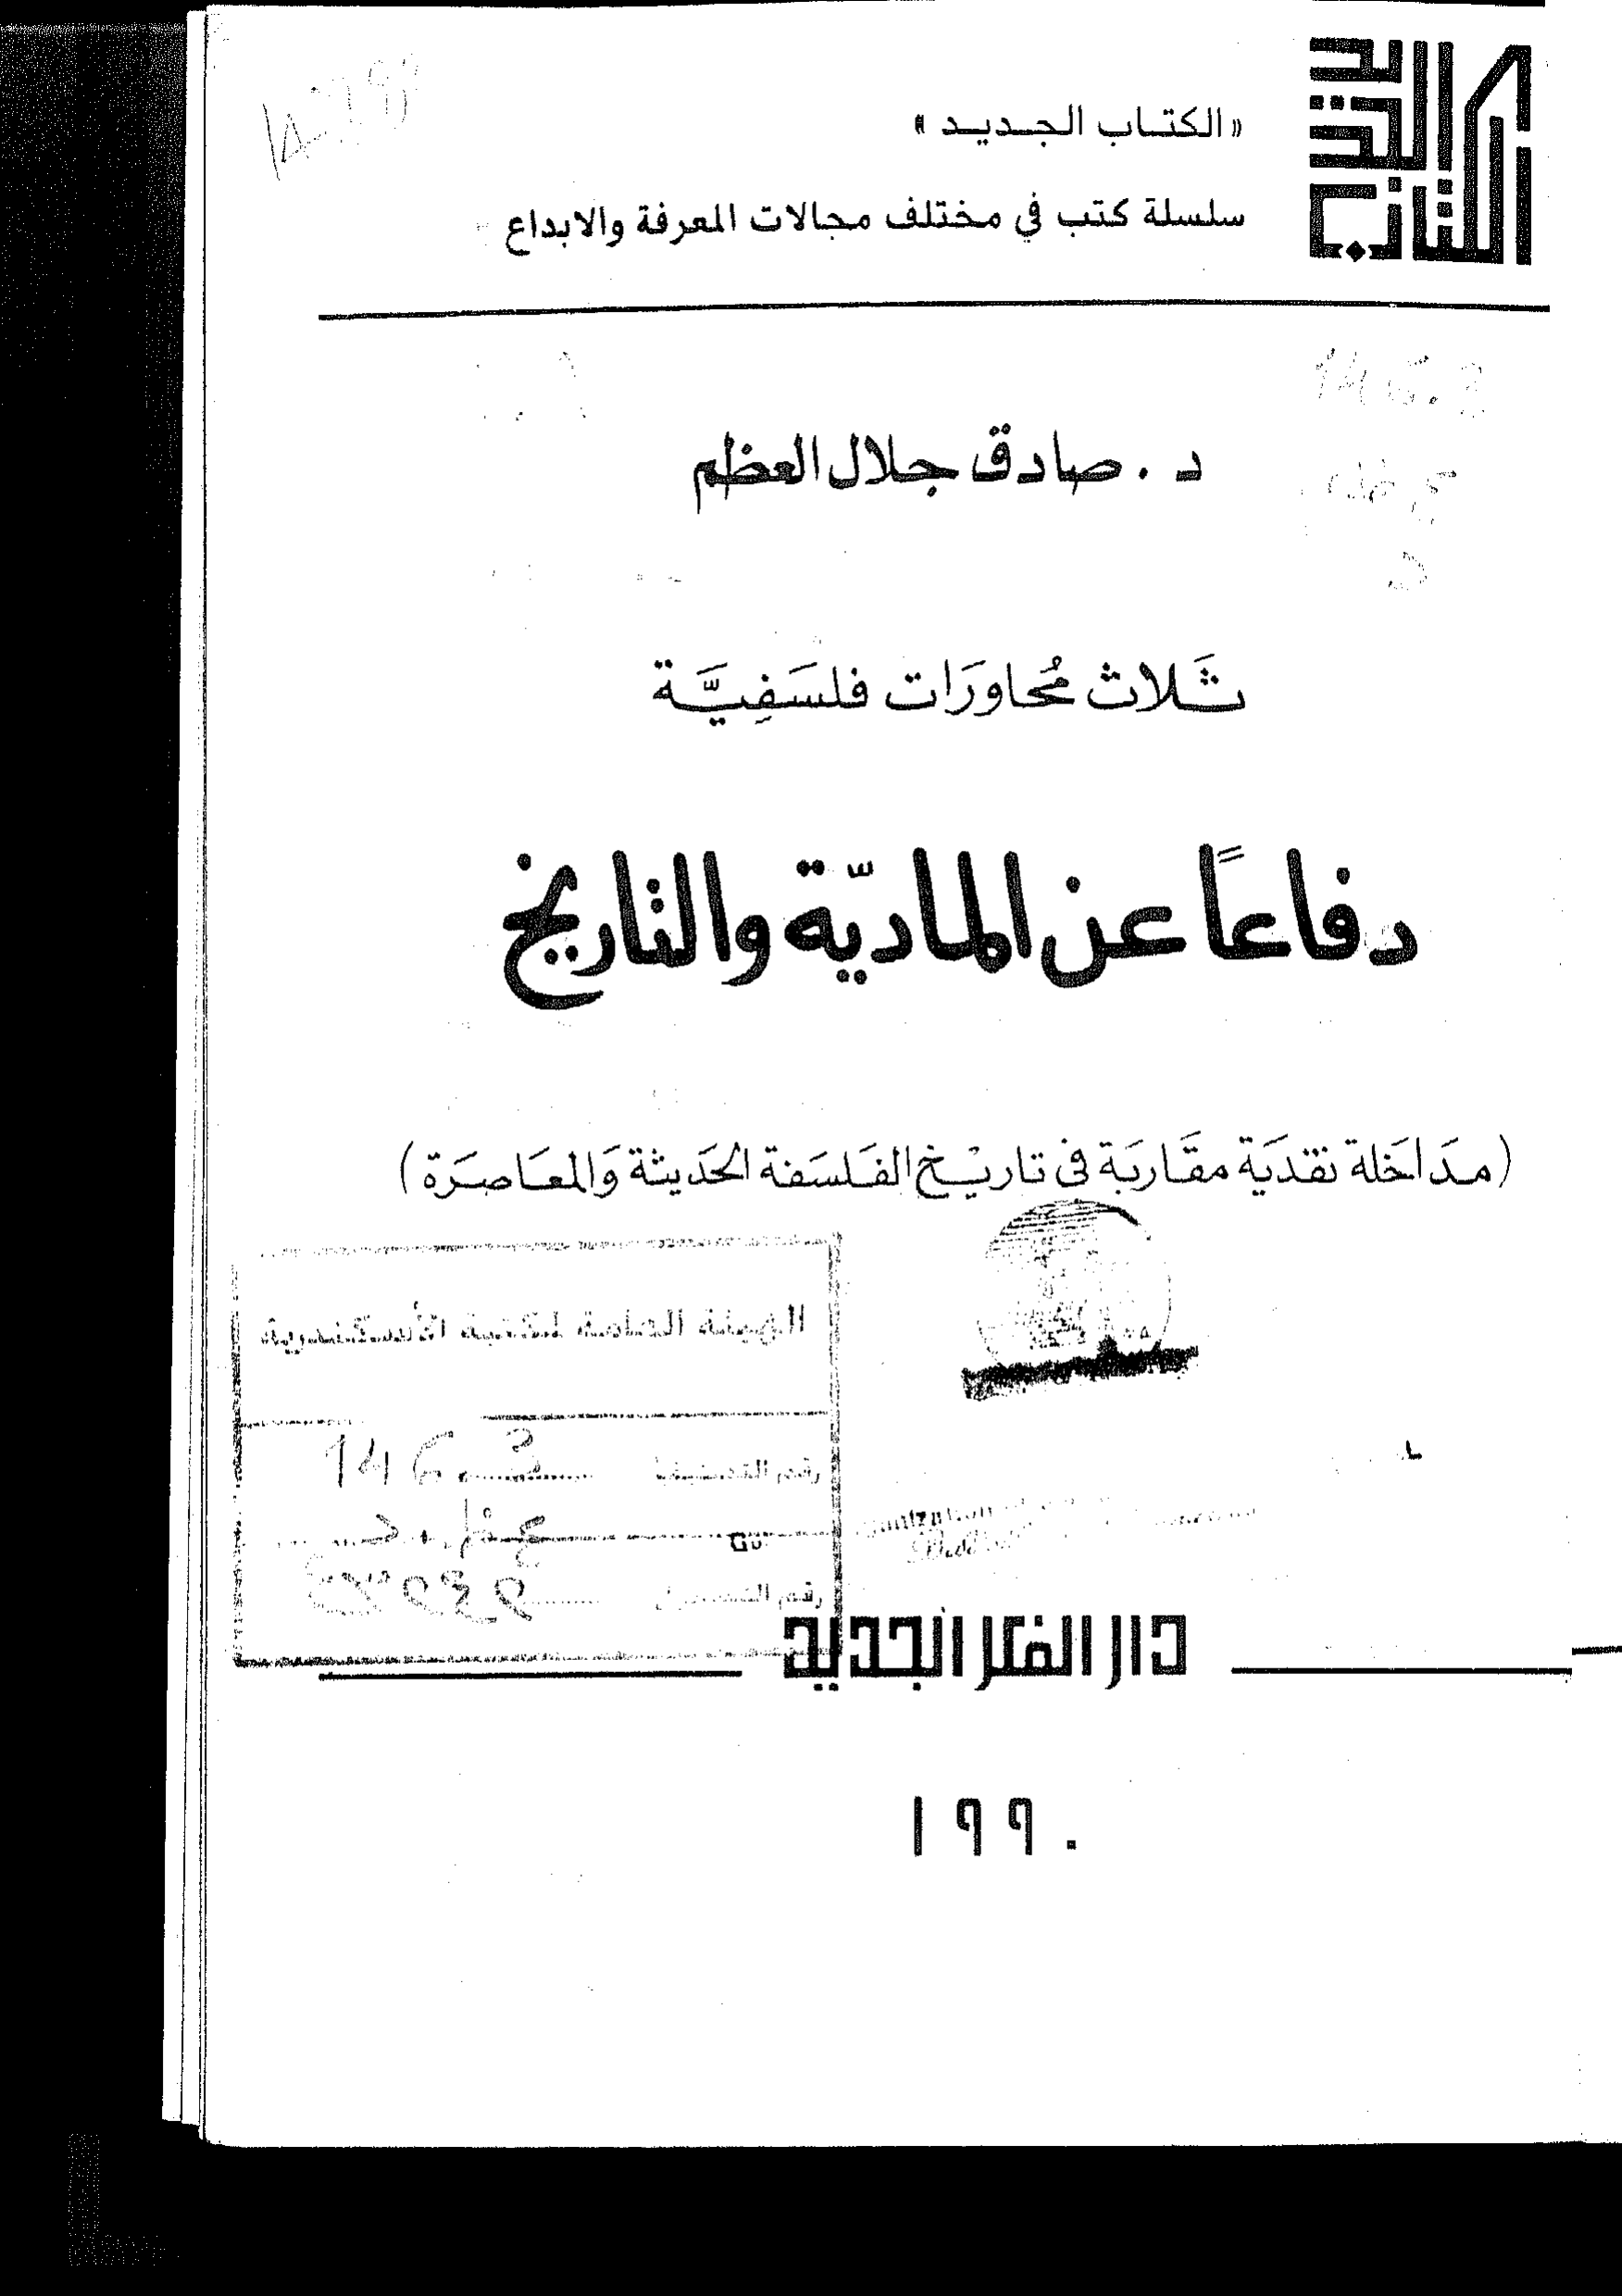 الكتاب الجديد
«الكتاب الجديد»
سلسلة كتب في مختلف مجالات المعرفة والابداع
د. صادق جلال العظم
ثَلاث مُحاورَات فلسَفِيَّة
دفاعاً عن الماديّة والتاريخ
(مدَاخَلة نقدَية مقَاربَة في تاريْخ الفَلسَفة الحَديثة وَالمعَاصرَة)
الهيئة العامة لمكتبة الأسكندرية
رقم التصنيف
رقم التسجيل
دار الفكر الجديد
١٩٩٠